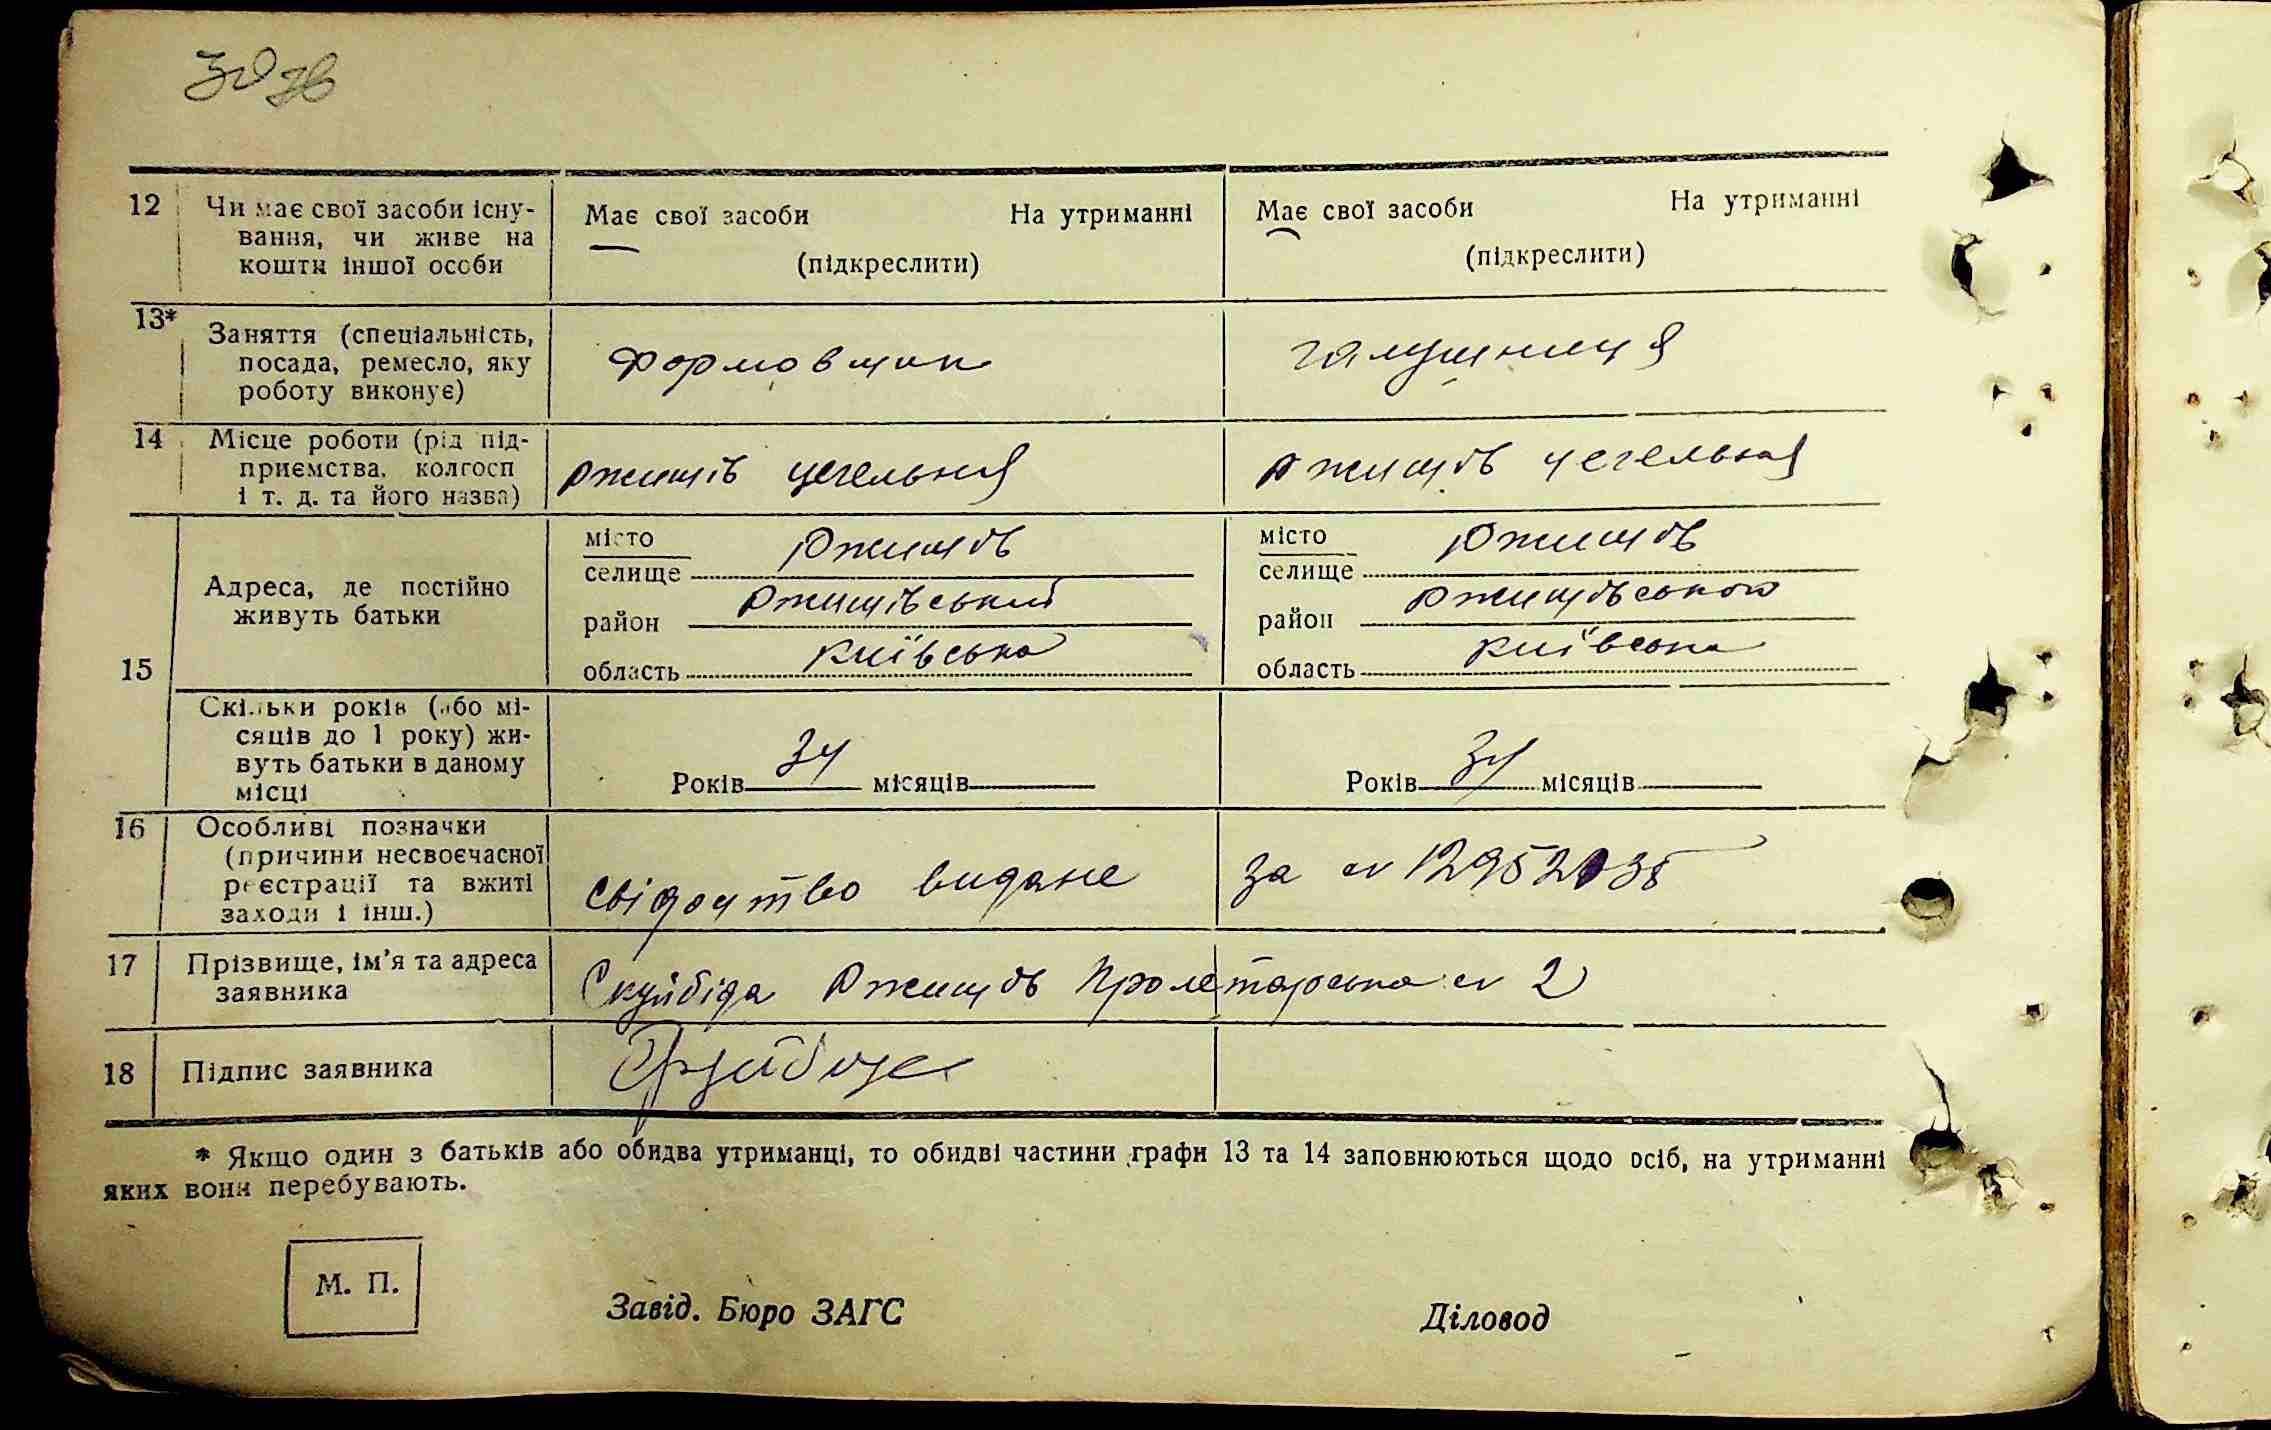 12 Чи має свої засоби існу- Має свої засоби На утриманні Має свої засоби На утриманні
вання, чи живе на
кошти іншої особи (підкреслити) (підкреслити)
13* Заняття (спеціальність,
посада, ремесло, яку формовщик
роботу виконує)
14 Місце роботи (рід під-
приємства, колгосп Ржищів цегельня Ржищів цегельня
і т. д. та його назва)
місто Ржищів місто Ржищів
селище селище
Адреса, де постійно Ржищівський Ржищівського
живуть батьки район район
Київська Київська
15 область область
Скільки років (або мі-
сяців до 1 року) жи-
вуть батьки в даному 34 34
місці Років місяців Років місяців
16 Особливі позначки
(причини несвоєчасної
реєстрації та вжиті свідоцтво видане за №
заходи і інш.)
17 Прізвище, ім'я та адреса
заявника Скуйбіда Ржищів Пролетарська № 2
18 Підпис заявника
* Якщо один з батьків або обидва утриманці, то обидві частини графи 13 та 14 заповнюються щодо осіб, на утриманні
яких вони перебувають.
М. П.
Завід. Бюро ЗАГС Діловод